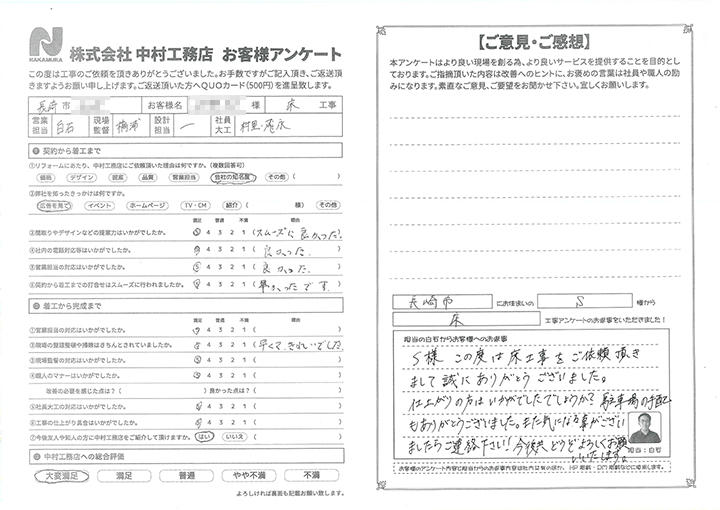 NAKAMURA
株式会社 中村工務店 お客様アンケート
この度は工事のご依頼を頂きありがとうございました。お手数ですがご記入頂き、ご返送頂
きますようお願い申し上げます。ご返送頂いた方へQUOカード(500円)を進呈致します。
長崎市 お客様名 様 床 工事
営業担当 白石 現場監督 設計担当 ー 社員大工
❶ 契約から着工まで
①リフォームにあたり、中村工務店にご依頼頂いた理由は何ですか。(複数回答可)
価格 デザイン 提案 品質 営業担当 会社の知名度 その他 ( )
②弊社を知ったきっかけは何ですか。
広告を見て イベント ホームページ TV・CM 紹介 ( 様) その他
満足 普通 不満 理由
③間取りやデザインなどの提案力はいかがでしたか。 5 4 3 2 1 (スムーズに良かった。)
④社内の電話対応等はいかがでしたか。 5 4 3 2 1 ( 良かった。 )
⑤営業担当の対応はいかがでしたか。 5 4 3 2 1 ( 良かった。 )
⑥契約から着工までの打合せはスムーズに行われましたか。 5 4 3 2 1 ( 早かったです。 )
❷ 着工から完成まで
満足 普通 不満 理由
①営業担当の対応はいかがでしたか。 5 4 3 2 1 ( )
②現場の整理整頓や掃除はきちんとされていましたか。 5 4 3 2 1 (早くて、きれいでした。)
③現場監督の対応はいかがでしたか。 5 4 3 2 1 ( )
④職人のマナーはいかがでしたか。 5 4 3 2 1 ( )
改善の必要を感じた点は?( ) 良かった点は?( )
⑤社員大工の対応はいかがでしたか。 5 4 3 2 1 ( )
⑥工事の仕上がり具合はいかがでしたか。 5 4 3 2 1 ( )
⑦今後友人や知人の方に中村工務店をご紹介して頂けますか。 はい いいえ ( )
❸ 中村工務店への総合評価
大変満足 満足 普通 やや不満 不満
よろしければ裏面も記載お願い致します。
【ご意見・ご感想】
本アンケートはより良い現場を創る為、より良いサービスを提供することを目的とし
ております。ご指摘頂いた内容は改善へのヒントに、お褒めの言葉は社員や職人の励
みになります。素直なご意見、ご要望をお聞かせ下さい。宜しくお願いします。
長崎市 にお住まいの S 様から
床 工事アンケートのお返事をいただきました!
担当の白石からお客様へのお返事
S様 この度は床工事をご依頼頂き
まして誠にありがとうございました。
仕上がりの方はいかがでしたでしょうか? 駐車場の手配
もありがとうございました。また気になる事がござい
ましたらご連絡下さい! 今後共どうぞよろしくお願
いいたします。
担当:白石
お客様のアンケート内容と担当からのお返事内容は社内共有のほか、HP掲載・DM掲載などに使用します。